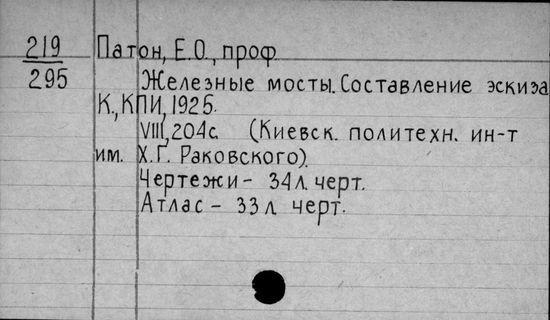 219 Патон, Е.О., проф.
295 Железные мосты. Составление эскиза
К., КПИ, 1925.
VIII, 204с. (Киевск. политехн. ин-т
им. Х.Г. Раковского).
Чертежи - 34л. черт.
Атлас - 33л черт.